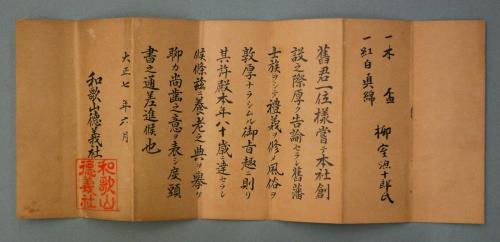 一木 盃
一紅白真綿
柳室源十郎氏
舊君一位様嘗テ本社創
設之際厚ク告諭セラレ舊藩
士族ヲシテ禮義ヲ修メ風俗ヲ
敦厚ナラシムル御旨趣ニ則リ
其許殿本年八十歳ニ達セラレ
候條茲ニ養老之典ヲ擧ケ
聊カ尚齒之意ヲ表シ度頭
書之通差進候也
大正七年六月
和歌山徳義社
和歌山
徳義社